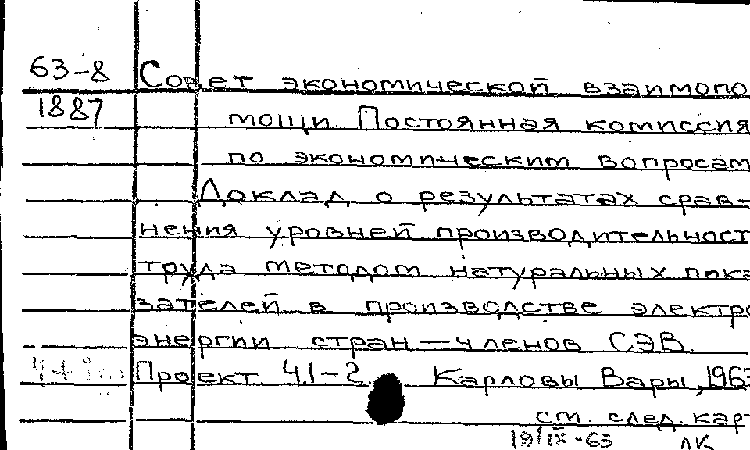 63-8 Совет экономической взаимопо
1887 мощи. Постоянная комиссия
по экономическим вопросам
Доклад о результатах срав-
нения уровней производительност
труда методом натуральных пока
зателей в производстве электро
энергии стран — членов СЭВ.
Проект 41-2. Карловы Вары, 196
см. след. карт
19/IX-63 ЛК